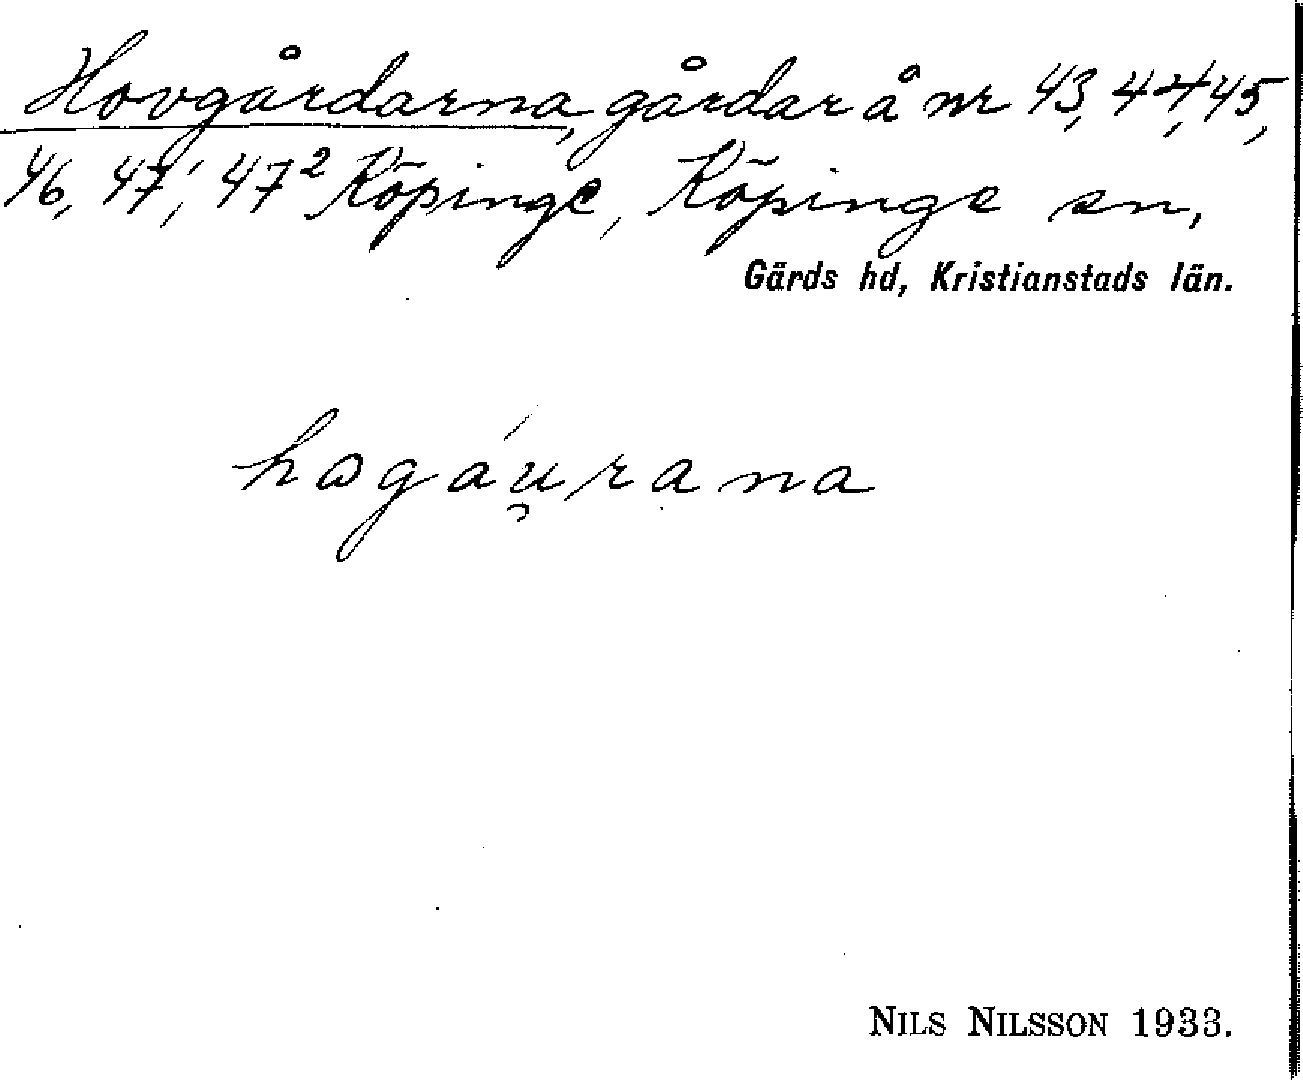 Hovgårdarna, gårdar å nr 43, 44, 45,
46, 47¹, 47² Köpinge, Köpinge sn,
Gärds hd, Kristianstads län.
hɷgáu̯rana
NILS NILSSON 1933.